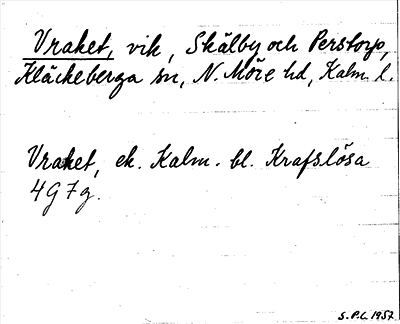 Vraket, vik, Skälby och Perstorp,
Kläckeberga sn, N. Möre hd, Kalm. l.
Vraket, ek. Kalm. bl. Krafslösa
4G7g.
S.P.L. 1957